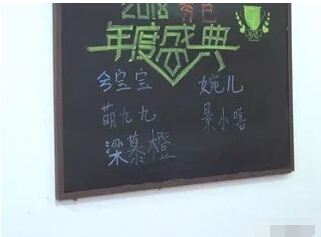 2018 奇巴
年度盛典
兮宝宝 婉儿
萌九九 景小嘻
梁慕橙